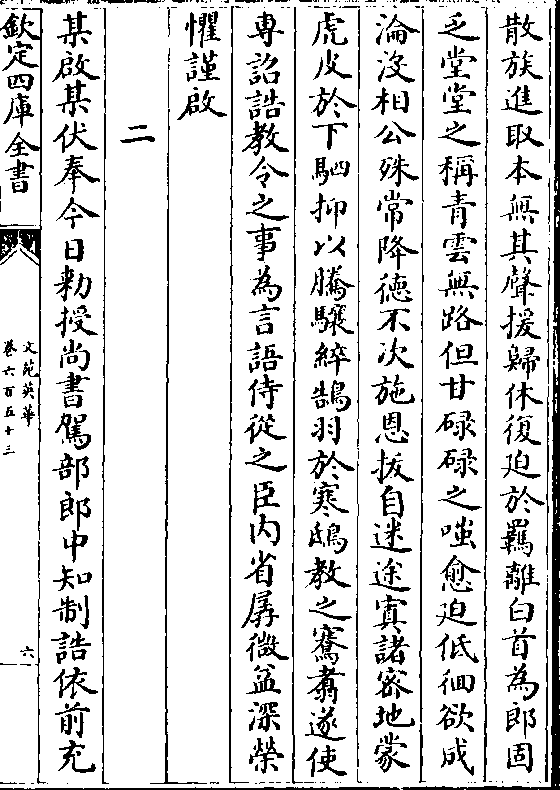 散族進取本無其聲援歸休復廹於羈離白首為郎固
乏堂堂之稱青雲無路但甘碌碌之嗤愈廹低徊欲成
淪沒相公殊常降徳不次施恩拔自迷途寘諸宻地蒙
虎皮於下駟抑以騰驤綷鵠羽於寒鴟教之騫翥遂使
専詔誥教令之事為言語侍從之臣内省孱微益深榮
懼謹啟
二
某啟某伏奉今日勅授尚書駕部郎中知制誥依前充
欽定四庫全書
文苑英華
卷六百五十三
六